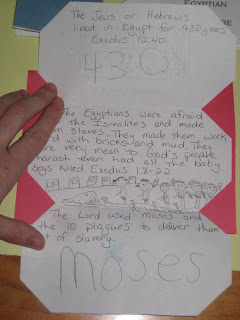 EGYPTIAN
The Jews or Hebrews
lived in Egypt for 430 years.
Exodus 12:40.
430
The Egyptians were afraid
the Israelites and made
slaves. They made them work
with bricks and mud. They
very mean to God's people.
even had all the baby
boys killed. Exodus 1:8-22
The Lord used Moses and
the 10 plagues to deliver them
of slavery.
moses